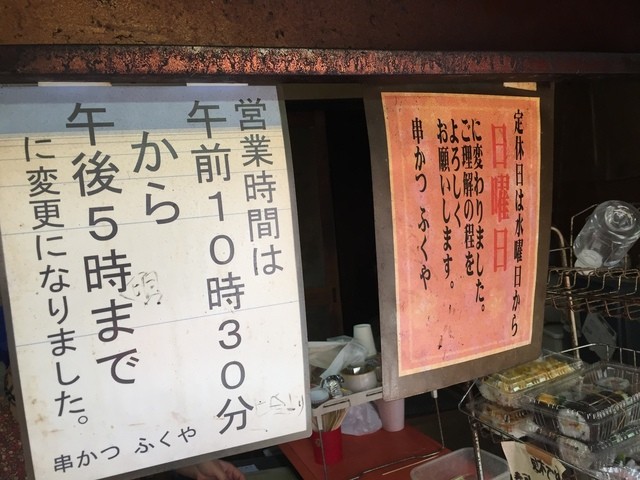 営業時間は
午前10時30分
から
午後5時まで
に変更になりました。
串かつ ふくや
定休日は水曜日から
日曜日
に変わりました。
ご理解の程を
よろしく
お願いします。
串かつ ふくや